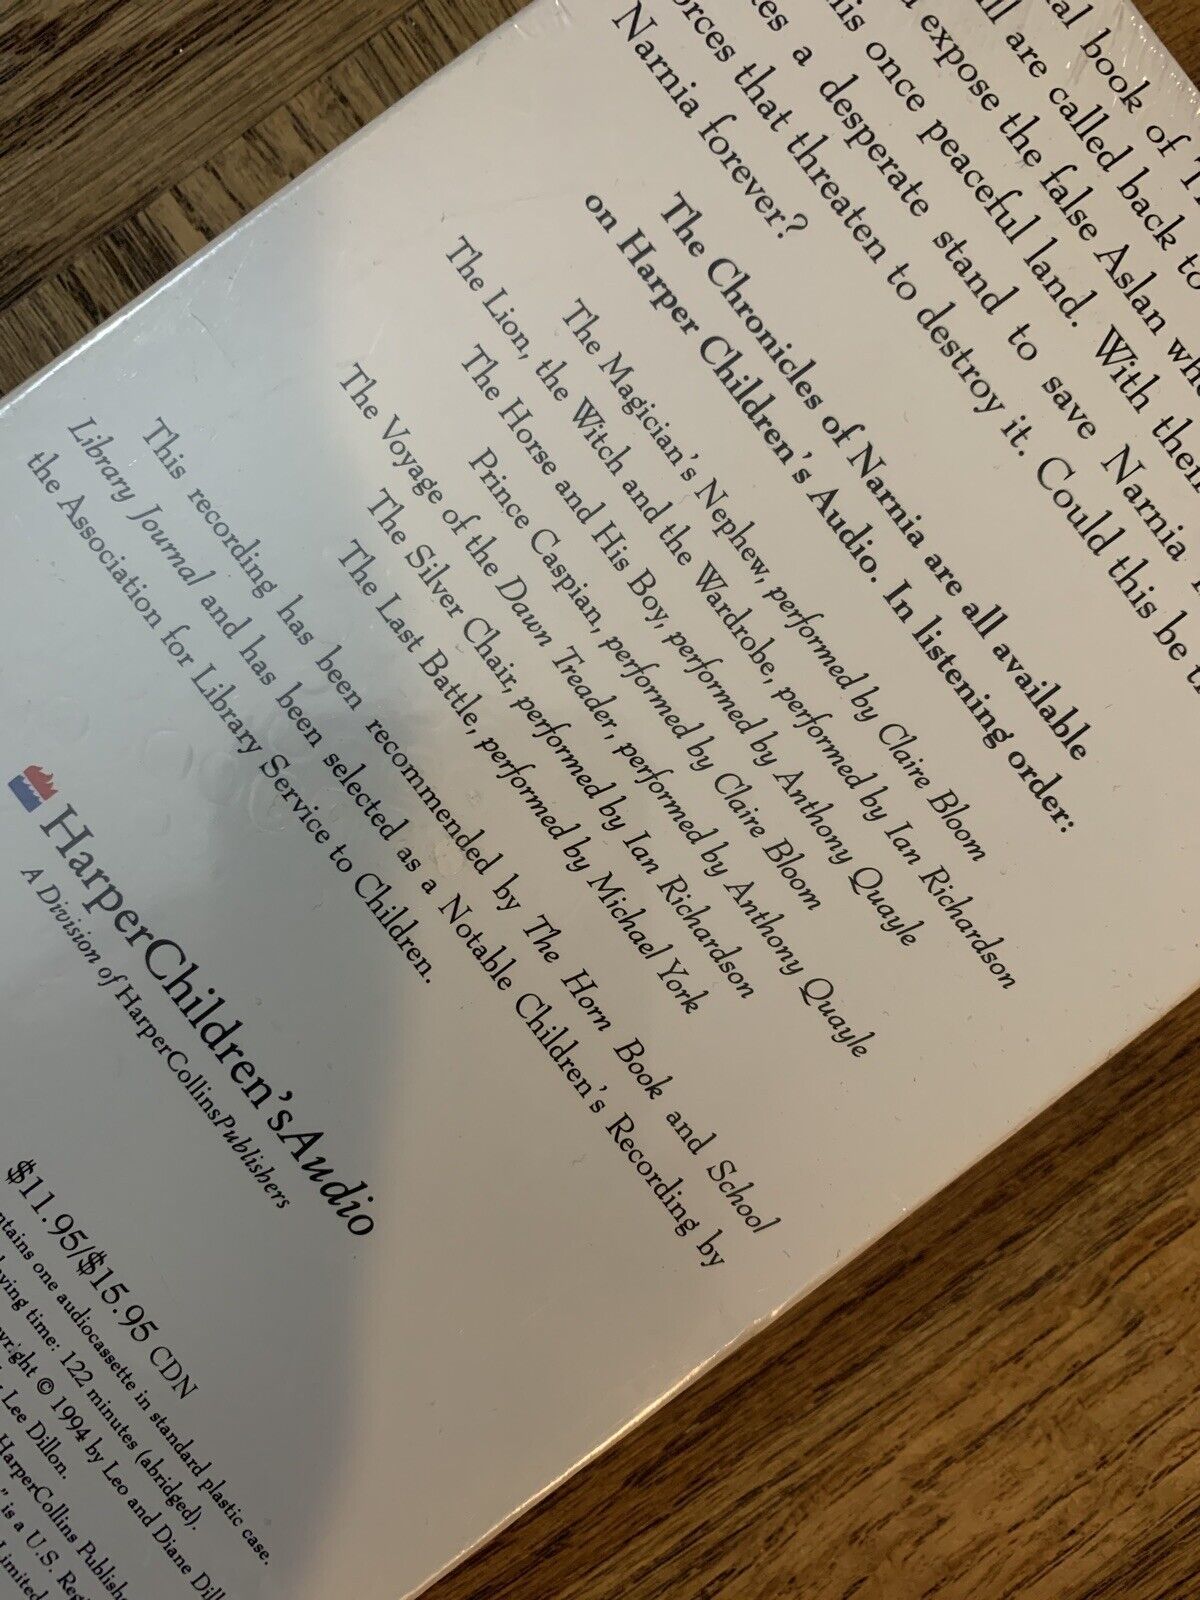 nal book of
ill are called back to
expose the false Aslan
his once peaceful land. With
a desperate stand to save Narnia
orces that threaten to destroy it. Could this be
Narnia forever?
The Chronicles of Narnia are all available
on Harper Children's Audio. In listening order:
The Magician's Nephew, performed by Claire Bloom
The Lion, the Witch and the Wardrobe, performed by Ian Richardson
The Horse and His Boy, performed by Anthony Quayle
Prince Caspian, performed by Claire Bloom
The Voyage of the Dawn Treader, performed by Anthony Quayle
The Silver Chair, performed by Ian Richardson
The Last Battle, performed by Michael York
This recording has been recommended by The Horn Book and School
Library Journal and has been selected as a Notable Children's Recording by
the Association for Library Service to Children.
HarperChildren'sAudio
A Division of HarperCollinsPublishers
$11.95/$15.95 CDN
ntains one audiocassette in standard plastic case.
aying time: 122 minutes (abridged).
pyright © 1994 by Leo and Diane Dil
Lee Dillon.
HarperCollins Publishe
" is a U.S. Reg
Limited